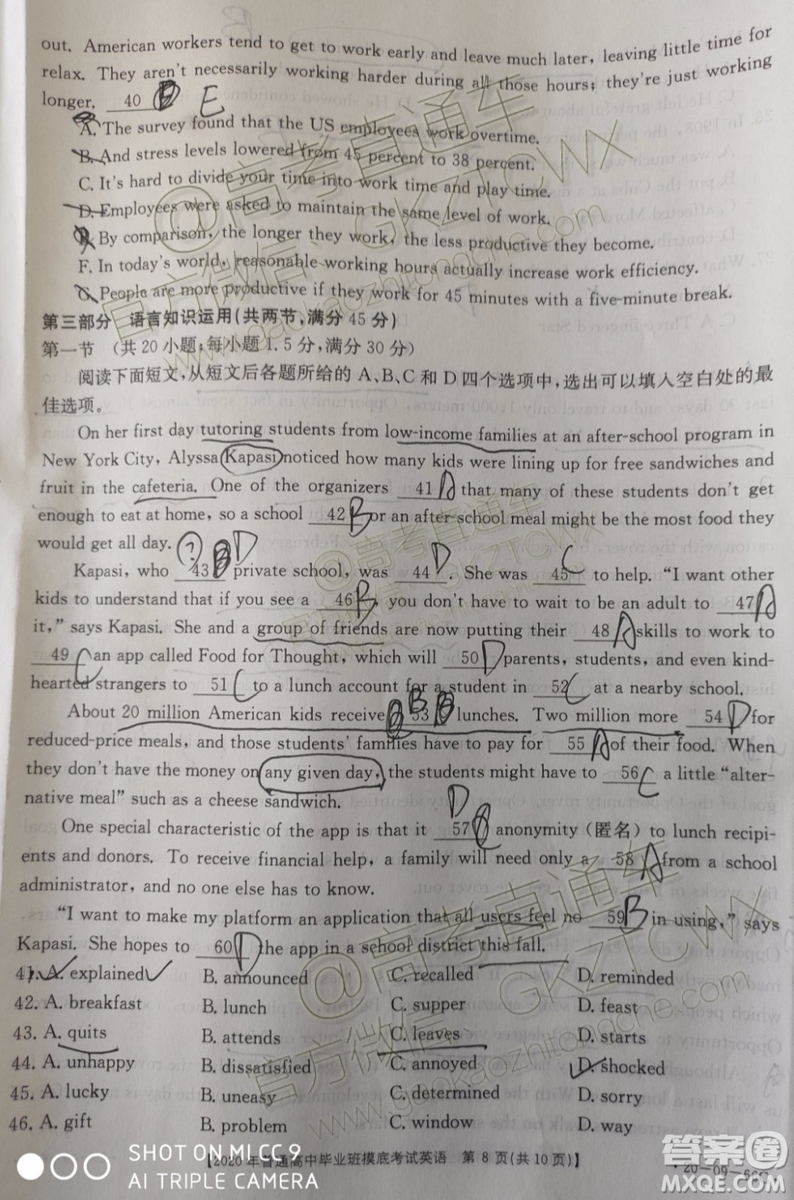 out. American workers tend to get to work early and leave much later, leaving little time for
relax. They aren't necessarily working harder during all those hours; they're just working
longer. 40 B E
A. The survey found that the US employees work overtime.
B. And stress levels lowered from 45 percent to 38 percent.
C. It's hard to divide your time into work time and play time.
D. Employees were asked to maintain the same level of work.
E. By comparison, the longer they work, the less productive they become.
F. In today's world, reasonable working hours actually increase work efficiency.
G. People are more productive if they work for 45 minutes with a five-minute break.
第三部分 语言知识运用(共两节,满分 45 分)
第一节 (共 20 小题;每小题 1.5 分,满分 30 分)
阅读下面短文,从短文后各题所给的 A、B、C 和 D 四个选项中,选出可以填入空白处的最
佳选项。
On her first day tutoring students from low-income families at an after-school program in
New York City, Alyssa Kapasi noticed how many kids were lining up for free sandwiches and
fruit in the cafeteria. One of the organizers 41 A that many of these students don't get
enough to eat at home, so a school 42 B or an after-school meal might be the most food they
would get all day. ? D
Kapasi, who 43 B private school, was 44 D. She was 45 C to help. "I want other
kids to understand that if you see a 46 B, you don't have to wait to be an adult to 47 A
it," says Kapasi. She and a group of friends are now putting their 48 A skills to work to
49 C an app called Food for Thought, which will 50 D parents, students, and even kind-
hearted strangers to 51 C to a lunch account for a student in 52 C at a nearby school.
About 20 million American kids receive 53 B lunches. Two million more 54 D for
reduced-price meals, and those students' families have to pay for 55 A of their food. When
they don't have the money on any given day, the students might have to 56 C a little "alter-
native meal" such as a cheese sandwich.
One special characteristic of the app is that it 57 D anonymity (匿名) to lunch recipi-
ents and donors. To receive financial help, a family will need only a 58 A from a school
administrator, and no one else has to know.
"I want to make my platform an application that all users feel no 59 B in using," says
Kapasi. She hopes to 60 D the app in a school district this fall.
41. A. explained B. announced C. recalled D. reminded
42. A. breakfast B. lunch C. supper D. feast
43. A. quits B. attends C. leaves D. starts
44. A. unhappy B. dissatisfied C. annoyed D. shocked
45. A. lucky B. uneasy C. determined D. sorry
46. A. gift B. problem C. window D. way
【2020 年普通高中毕业班摸底考试英语 第 8 页(共 10 页)】
·20-09-
@高考直通车
官方微信:GKZTCWX
www.gaokaozhitongche.com
SHOT ON MI CC 9
AI TRIPLE CAMERA
答案圈
MXQE.COM